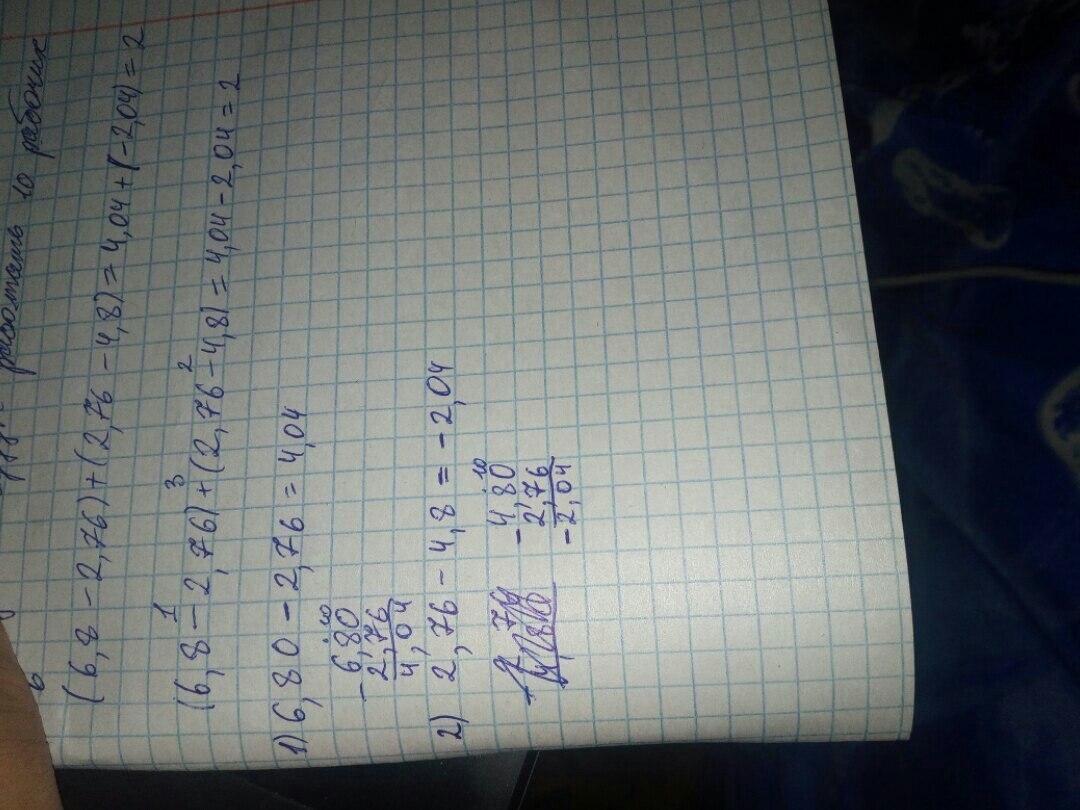 работать 10 рабочих
(6,8 - 2,76) + (2,76 - 4,8) = 4,04 + (-2,04) = 2
1 3 2
(6,8 - 2,76) + (2,76 - 4,8) = 4,04 - 2,04 = 2
1) 6,80 - 2,76 = 4,04
10
- 6,80
2,76
4,04
2) 2,76 - 4,8 = -2,04
10
- 4,80
2,76
-2,04